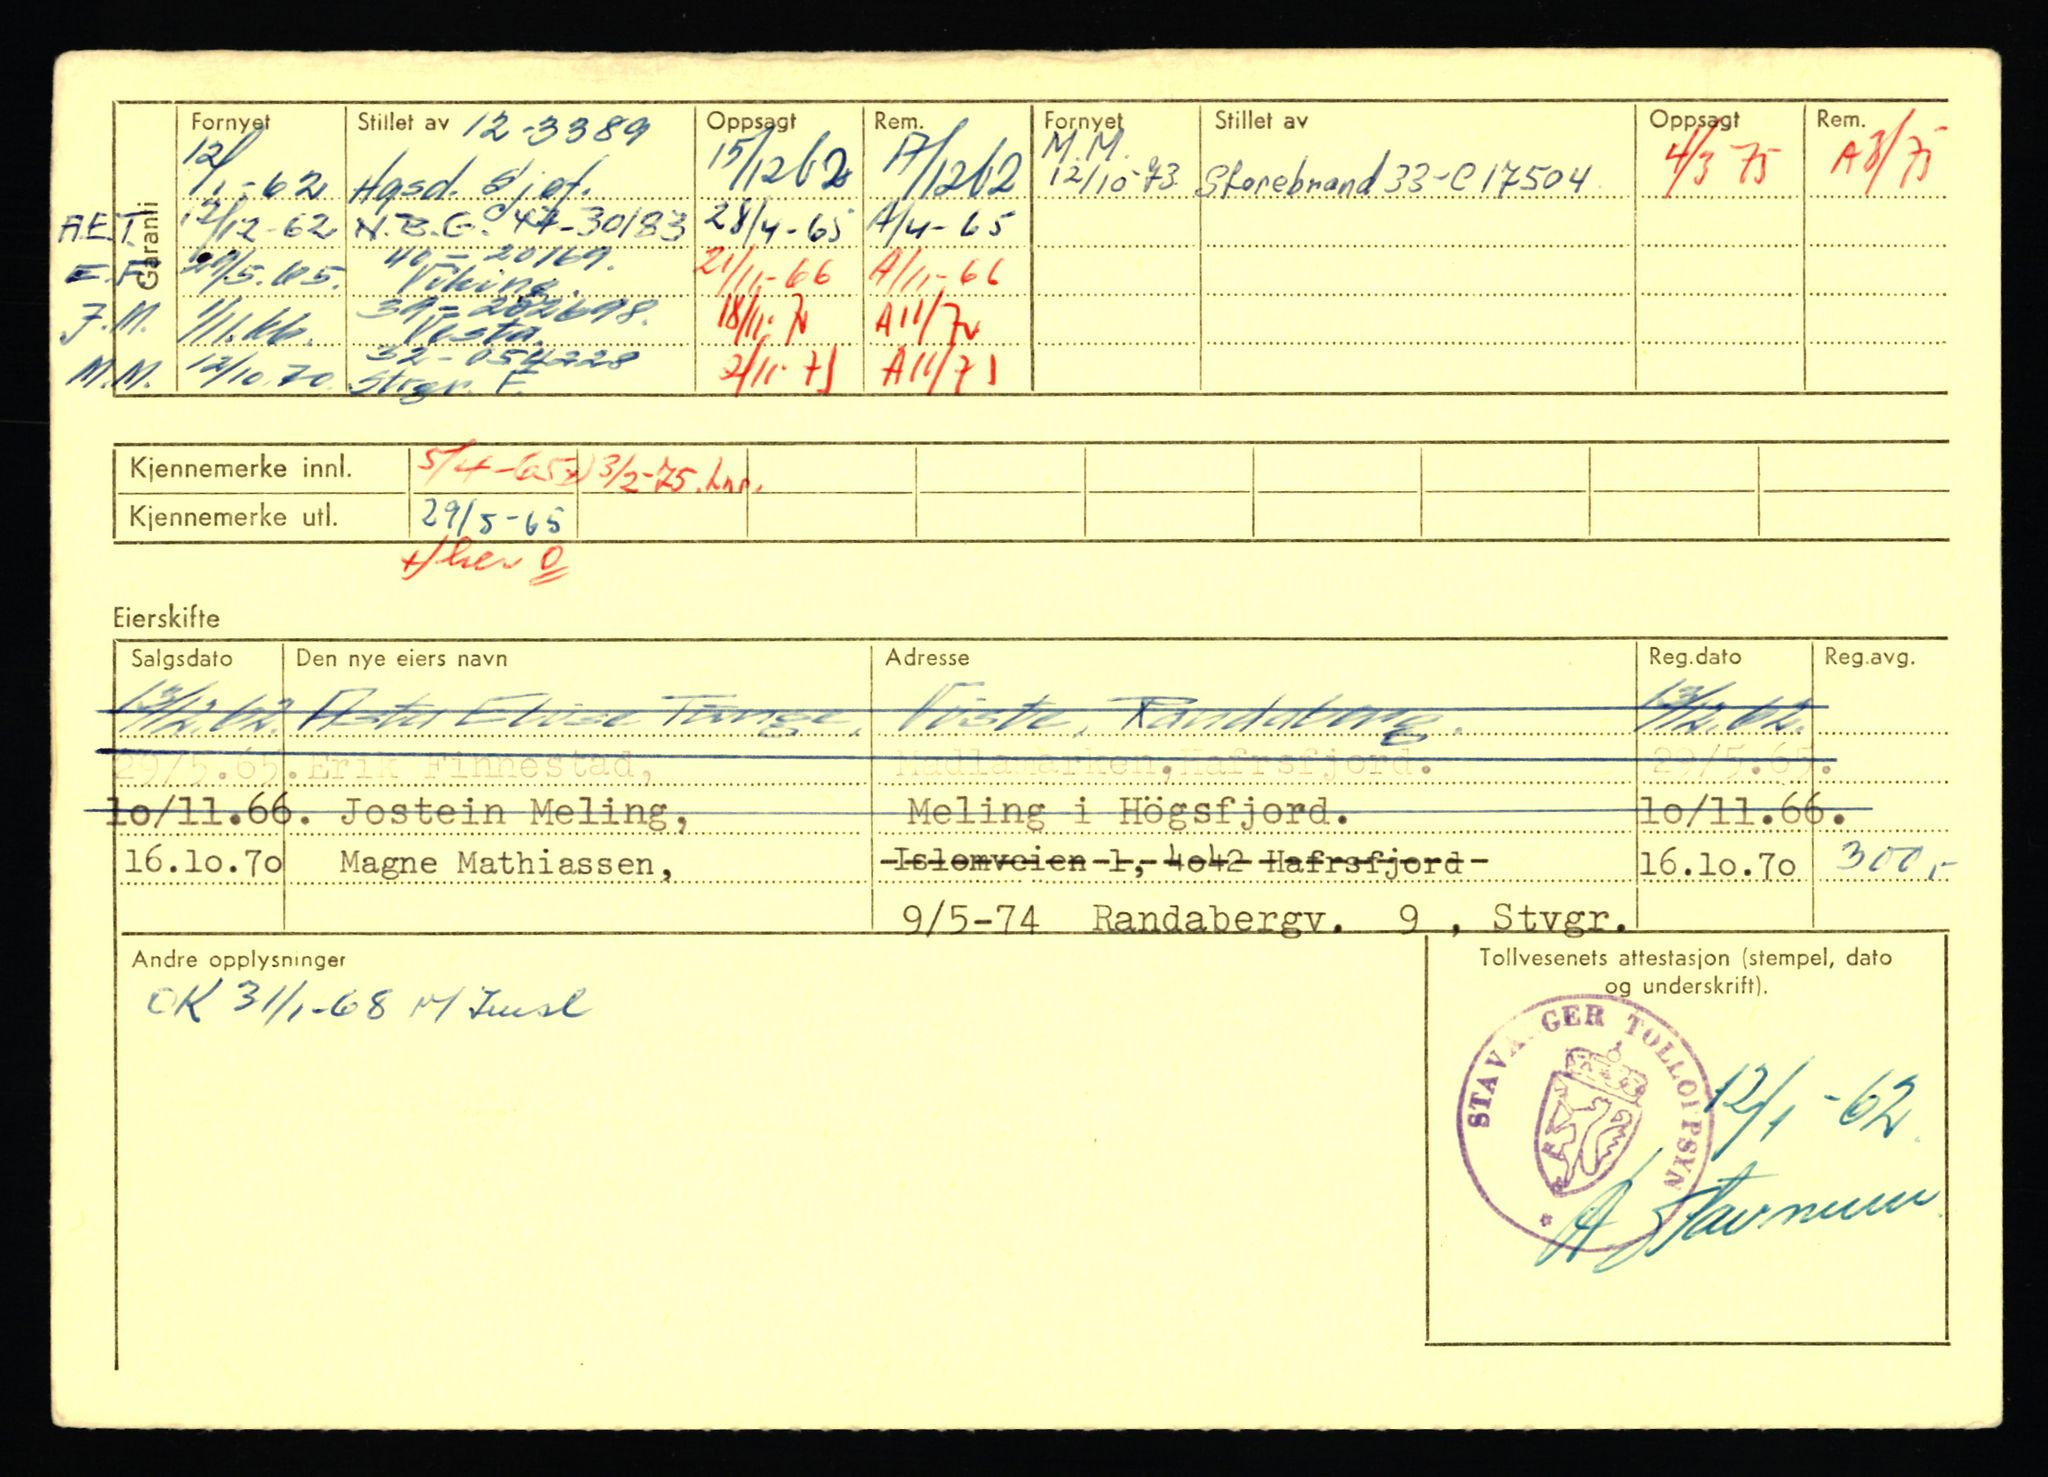 Garanti
Fornyet Stillet av 12-3389 Oppsagt Rem. Fornyet Stillet av Oppsagt Rem.
12/1-62 Hgsd. Sjøf. 15/12 62 17/12 62 M.M. 12/10-73 Storebrand 33-C 17504 4/3 75 A 3/75
A.E.T. 17/12-62 N.B.G. 47-30183 28/4-65 A/4-65
E.F. 29/5.65. 40-20169. Viking. 21/11-66 A/11-66
J.M. 1/11.66. 39-202698. Vesta. 18/11- A11/
M.M. 12/10.70. 32-054228 Strgr. F. 2/11-73 A11/73
Kjennemerke innl. 5/4-65 x) 3/2-75.
Kjennemerke utl. 29/5-65
x) her 0
Eierskifte
Salgsdato Den nye eiers navn Adresse Reg.dato Reg.avg.
13/12.62. Asta Elise Tunge, Viste, Randaberg. 13/12.62.
29/5.65. Erik Finnestad, Madlamarken, Hafrsfjord. 29/5.65.
10/11.66. Jostein Meling, Meling i Högsfjord. 10/11.66.
16.10.70 Magne Mathiassen, Islomveien 1, 4042 Hafrsfjord 16.10.70 300,-
9/5-74 Randabergv. 9 , Stvgr.
Andre opplysninger
OK 31/1-68
Tollvesenets attestasjon (stempel, dato
og underskrift).
STAVANGER TOLLOPPSYN
12/1-62.
A. Stavnum